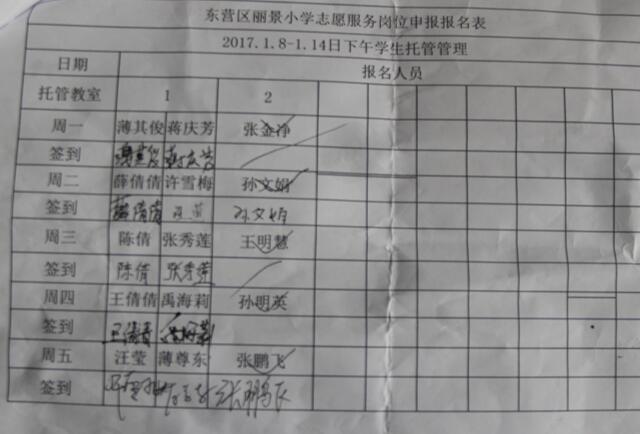 东营区丽景小学志愿服务岗位申报报名表
2017.1.8-1.14日下午学生托管管理
日期 报名人员
托管教室 1 2
周一 薄其俊 蒋庆芳 张金净
签到
周二 薛倩倩 许雪梅 孙文娟
签到 薛倩倩 孙文娟
周三 陈倩 张秀莲 王明慧
签到 陈倩 张秀莲
周四 王倩倩 禹海莉 孙明英
签到 王倩倩
周五 汪莹 薄尊东 张鹏飞
签到 张鹏飞